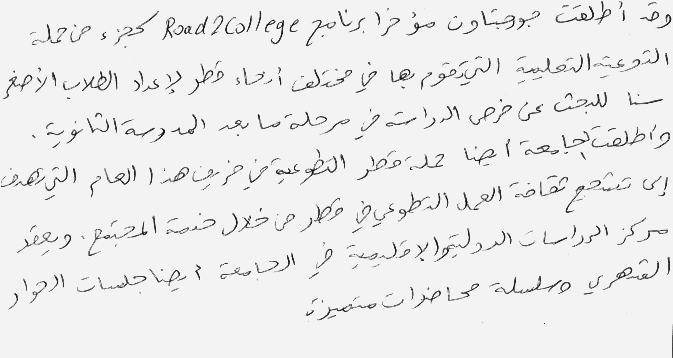 وقد أطلقت جورجتاون مؤخرا برنامج Road2College كجزء من حملة
التوعية التعليمية التي تقوم بها في مختلف أرجاء قطر لإعداد الطلاب الأصغر
سنا للبحث عن فرص الدراسة في مرحلة ما بعد المدرسة الثانوية .
وأطلقت الجامعة أيضا حملة قطر التطوعية في خريف هذا العام التي تهدف
إلى تشجيع ثقافة العمل التطوعي في قطر من خلال خدمة المجتمع . ويعقد
مركز الدراسات الدولية والإقليمية في الجامعة أيضا جلسات الحوار
الشهري وسلسلة محاضرات متميزة